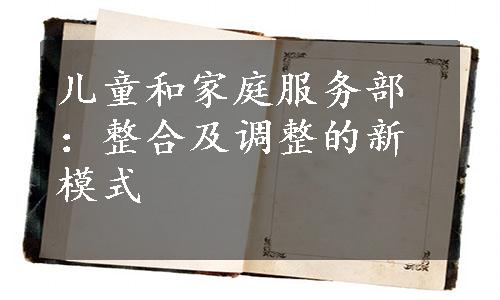 儿童和家庭服务部
：整合及调整的新
模式